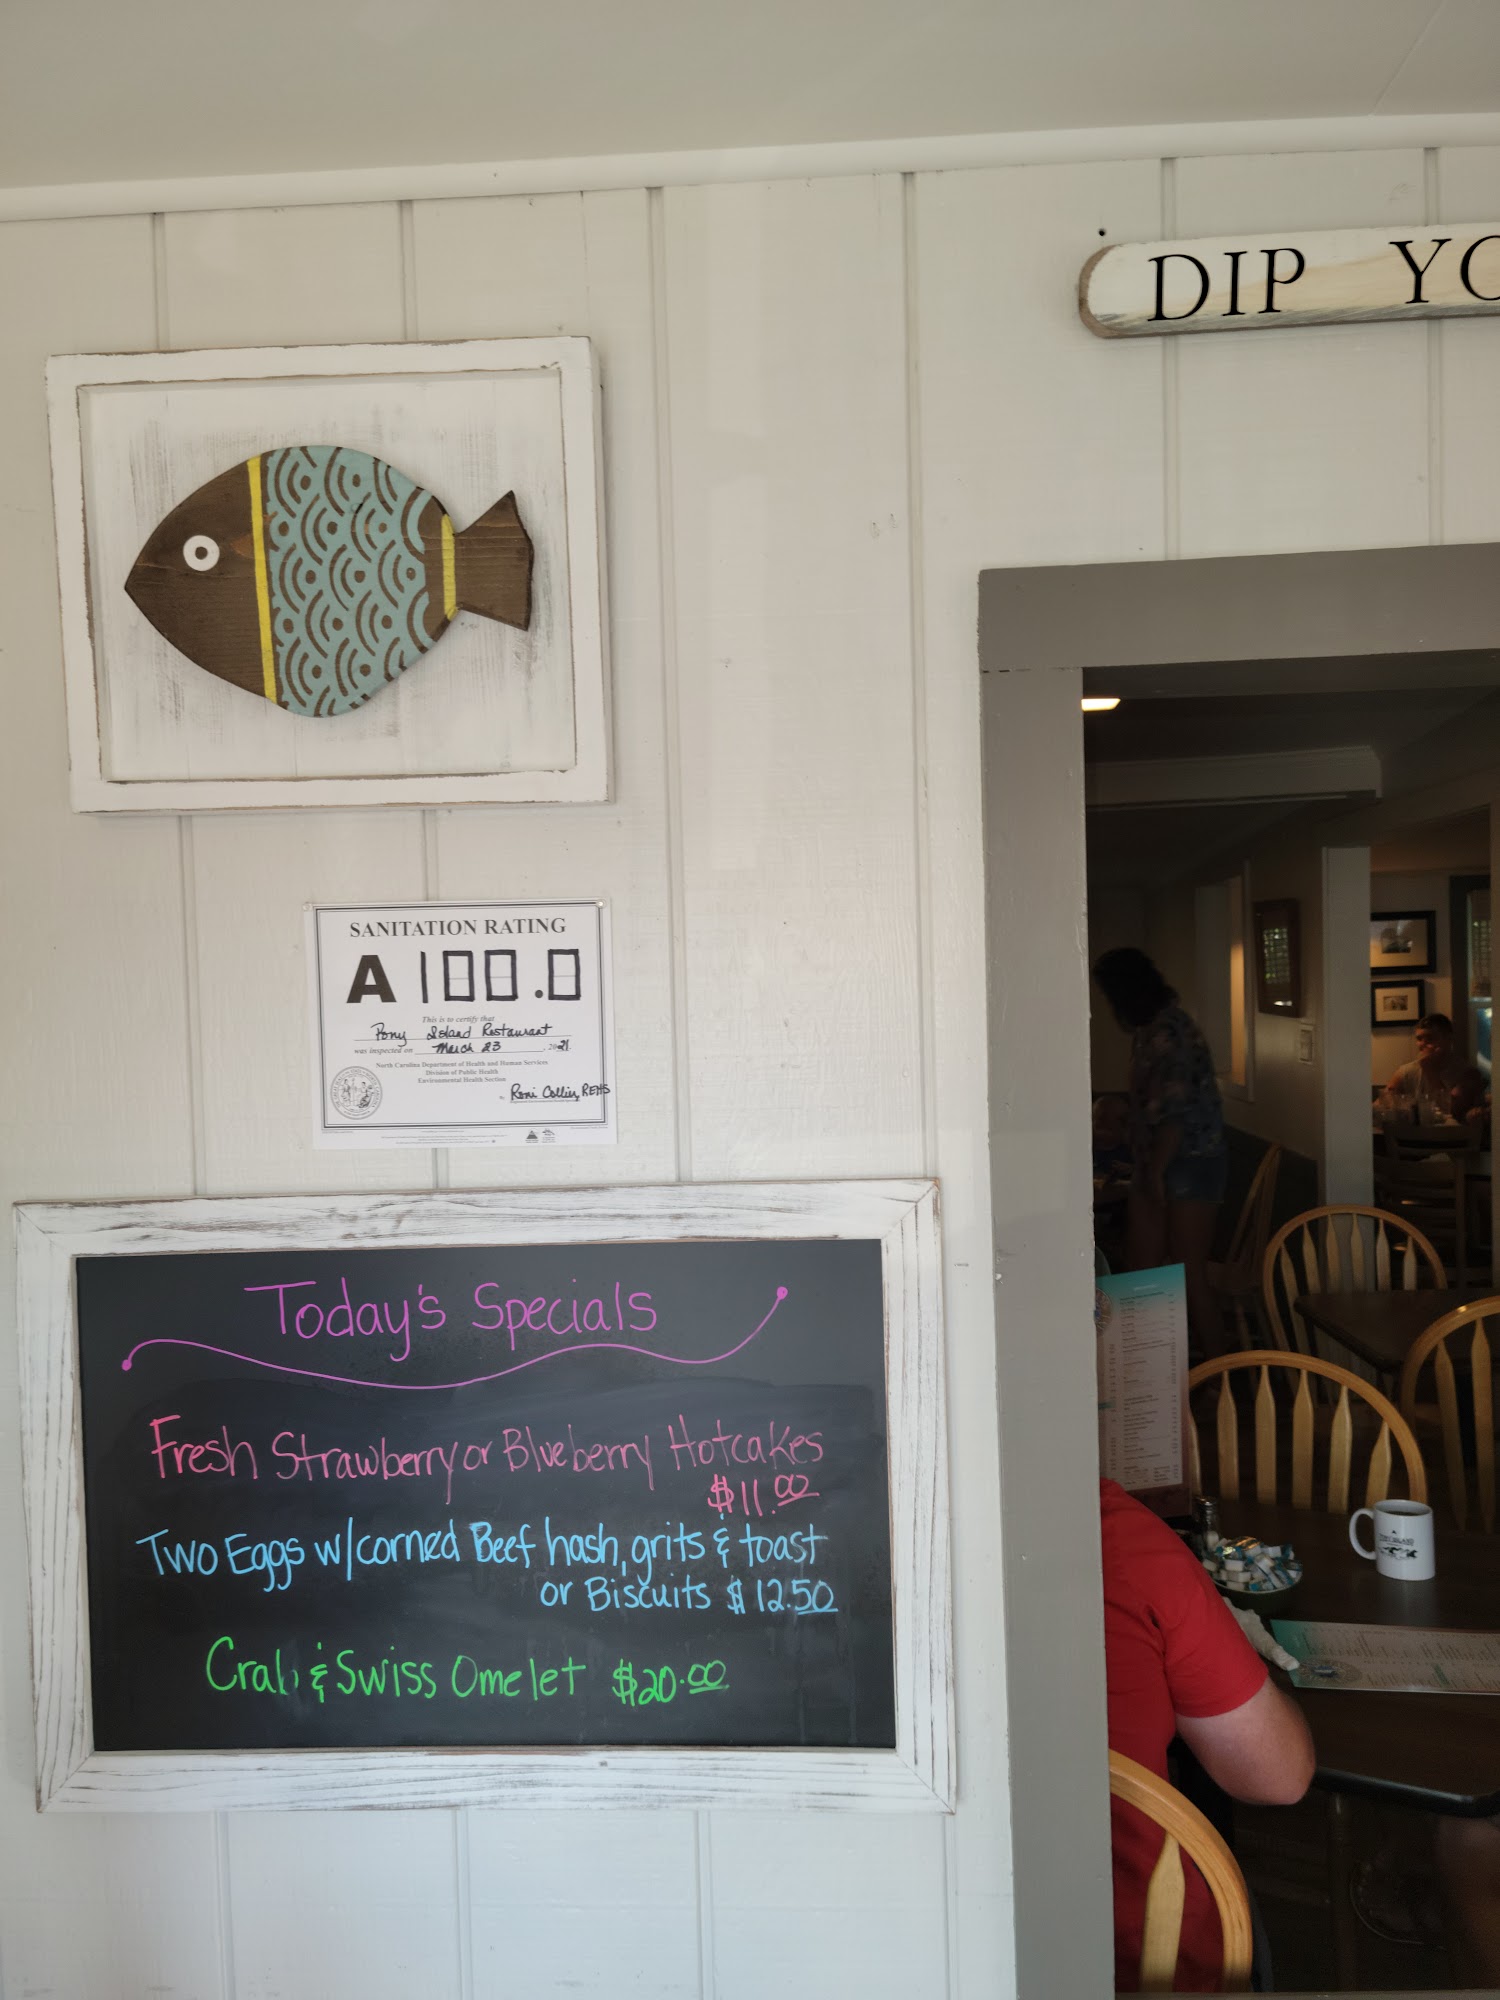 DIP YO
SANITATION RATING
A 100.0
This is to certify that
Pony Island Restaurant
was inspected on March 23, 2021.
North Carolina Department of Health and Human Services
Division of Public Health
Environmental Health Section
Roni Collier, REHS
Today's Specials
Fresh Strawberry or Blueberry Hotcakes
$11.00
Two Eggs w/corned Beef hash, grits & toast
or Biscuits $12.50
Crab & Swiss Omelet $20.00